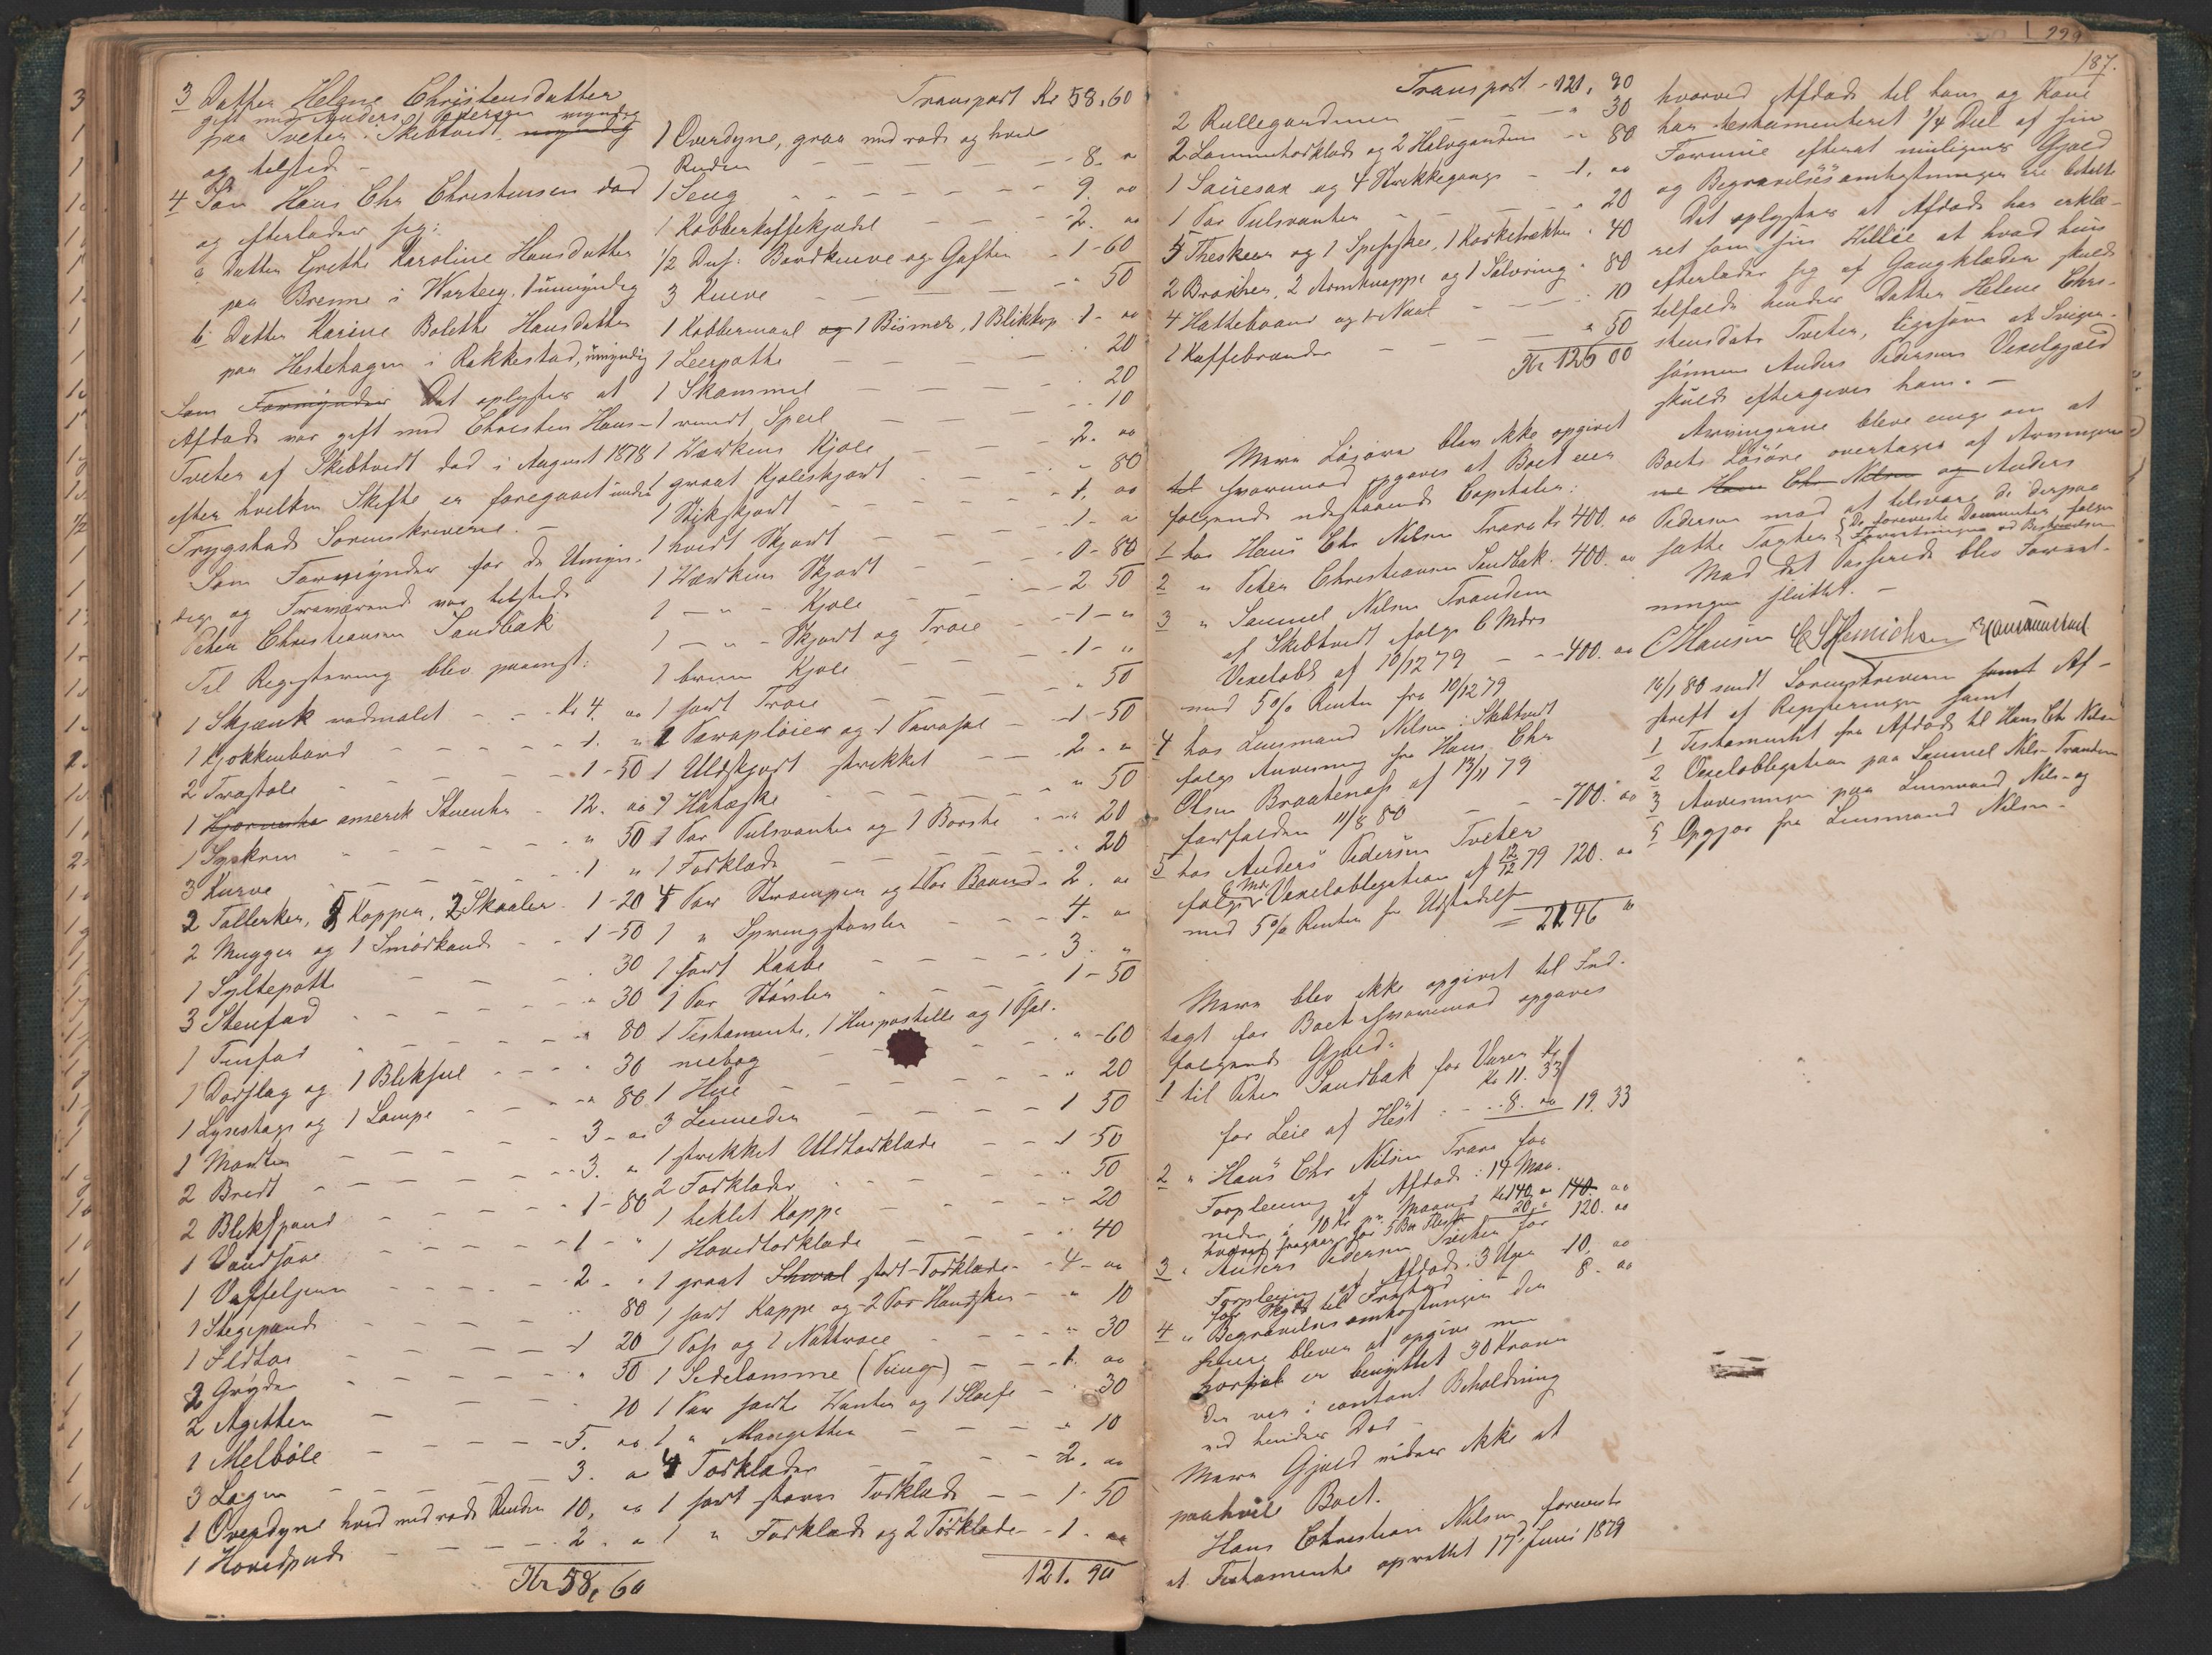 3 Datter Helene Christensdatter
gift med Anders Pedersen myndig
paa Tveter i Skibtvedt, myndig
og tilsted -
4 Søn Hans Chr Christensen død
og efterlader sig:
a Datter Grethe Karoline Hansdatter
paa Brenne i Varteig, umyndig
b. Datter Karine Bolethe Hansdatter
paa Hestehagen i Rakkestad, umyndig
Som Formynder Det oplystes at
Afdøde var gift med Christen Hans-
Tveter af Skibtvedt død i August 1878
efter hvilken Skifte er foregaaet under
Trygstads Sorenskriverie. -
Som Formynder for de Umyn-
dige og Fraværende var tilstede
Peter Christiansen Sandbæk
Til Registrering blev paavist:
1 Skjænk rødmalet - - Kr 4. oo
1 Kjøkkenbord - - - - 1. "
2 Træstole - - - - 1-50
1 Kjærneske amerik Stueuhr - 12. oo
1 Syskrin - - - - " 50
3 Kurve - - - - 1 "
2 Tallerker, 5 Kopper, 2 Skaaler 1-20
2 Mugger og 1 Smørkande - - 1-50
1 Syltepotte - - - 30
3 Stenfad - - - - " 30
1 Tinfad - - - - " 80
1 Dørslag og 1 Bliksul - - - " 30
1 Lysestage og 1 Lampe - - - " 80
1 Morter - - - - 3 - oo
2 Bredt - - - - 3. "
2 Blikspand - - - - 1-80
1 Vandsaae - - - - 1 - "
1 Vaffeljern - - - - 2 - "
1 Stegepande - - - - 80
1 Ildtar - - - - 1 20
2 Gryder - - - - " 50
2 Agetter - - - 20
1 Melbøle - - - - 5. oo
3 Lagen - - - - 3. o
1 Overdyne hvid med røde Render 10, oo
1 Hovedpude - - - - 2. "
Kr 58,60
Transport Kr 58,60
1 Overdyne, graa med røde og hvide
Render - - - - 8. "
1 Seng - - - - 9. oo
1 Kobberkaffekjedel - - - 2. oo
1/2 Dus: Bordknive og Gafler - 1-60
3 Knive - - - - " 50
1 Kobbermaal og 1 Bismer, 1 Blikkop 1- oo
1 Leerpotte - - - 20
1 Skammel - - - - 20
1 rundt Speil - - - 10
1 Værkens Kjole - - - 2. oo
1 graat Kjoleskjørt - - - 80
1 Strikskjørt - - - 1. oo
1 hvidt Skjørt - - - 1- o
1 Værkens Skjørt - - - 0-80
1 - " - Kjole - - - 2 50
1 - " - Skjørt og Trøie - - 1- "
1 brun Kjole - - - 1- "
1 sort Trøie - - - " 50
1 Parapløier og 1 Parasol - - 1-50
1 Uldskjørt strikket - - 2. "
1 Hatæske - - - " 50
1 Par Pulsvanter og 1 Børste - " 20
1 Forklæde - - - " 20
4 Par Strømper og 1 Par Baand - 2. oo
1 " Springstøvler - - 4. oo
1 sort Kaabe - - - 3. "
1 Par Støvler - - - 1-50
1 Testamente, 1 Huspostille og 1 Psal-
mebog - - - " -60
1 Hue - - - " 20
3 Linneder - - - 1 50
1 strikket Uldtørklæde - - 1 50
2 Forklæder - - - " 50
1 heklet Kappe - - - 20
1 Hovedtørklæde - - - 40
1 graat Schaval stort Tørklæde - 4 - oo
1 sort Kappe og 2 Par Handsker - " 10
1 Pose og 1 Nattrøie - - - " 30
1 Sedelomme (Pung) - - 1. oo
1 Par sorte Vanter og 1 Sløife - 30
1 " Mangetter - - - " 10
4 Tørklæder - - - 2. oo
1 sort stort Tørklæde - - 1-50
1 " Forklæde og 2 Tørklæde - 1. oo
121. 90
229
187.
Transport - 121, 90
2 Rullegardiner - - - " 30
2 Lommetørklæde og 2 Halvgardiner - " 80
1 Sauesax og 4 Strikkegange - 1. oo
1 Par Pulsvanter - - - " 20
5 Theskeer og 1 Speseskee, 1 Korketrækker " 40
2 Broscher, 2 Armknappe og 1 Sølvring " 80
4 Hattebaand og 1 Naal - - - " 10
1 Kaffebrænder - - - " 50
Kr 126 00
Mere Løsøre blev ikke opgivet
til hvorimod opgaves at Boet eier
følgende udestaaende Capitaler:
1 hos Hans Chr Nilsen Trara Kr 400. oo
2 " Peter Christiansen Sandbæk 400. oo
3 " Samuel Nilsen Trandem
af Skibtvedt ifølge 6 Mdrs
Vexelobl af 10/12 79 - - - 400. oo
med 5% Renter fra 10/12 79
4 hos Lensmand Nilsen i Skibtvedt
følge Anvisning fra Hans Chr
Olsen Braatenæs af 13/11 79
forfalden 11/8 80 - - - 700. oo
5 hos Anders Pedersen Tveter
følge 6 Mdr Vexelobligation af 12/12 79 120. oo
med 5% Renter fra Udstedelsen
= 2246 "
Mere blev ikke opgivet til Ind-
tægt for Boet hvorimod opgaves
følgende Gjæld:
1 til Peter Sandbæk for Varer Kr
Kr 11. 33
for Leie af Hest - - 8. oo 19. 33
2 " Hans Chr Nilsen Trara for
Forpleining af Afdøde i 14 Maa-
neder a 10 Kr pr Maaned Kr 140 " 140. oo
hvoraf fragaar for 5 Bpd Flesk 20. " 120. oo
3 " Anders Pedersen Tveter for
Forpleining af Afdøde i 3 Uger 10. oo
for Skyds til Fredstad 8. oo
4 " Begravelsesomkostninger den
senere bliver at opgive men
hvortil er benyttet 30 Kroner
der var i contant Beholdning
ved hendes Død -
Mere Gjæld vides ikke at
paahvile Boet.
Hans Christian Nilsen foreviste
et Testamente oprettet 17d Juni 1879
hvorved Afdøde til ham og Kone
har testamenteret 1/4 Deel af sin
Formue efterat muligens Gjæld
og Begravelsesomkostninger ere betalte
Det oplystes at Afdøde har erklæ-
ret som sin Villie at hvad hun
efterlader sig af Gangklæder skulde
tilfalde hendes Datter Helene Chri-
stensdatr Tveter, ligesom at Sviger-
sønnen Anders Pedersens Vexelgjæld
skulde eftergives ham. -
Arvingerne bleve enige om at
Boets Løsøre overtages af Arvingerne
ne Hans Chr Nilsen og Anders
Pedersen mod at tilsvare de derpaa
satte Taxter. De foreviste Dokumenter følger
Forretningen ved Beskrivelsen
Med det Passerede blev Forret-
ningen sluttet. -
C Hansen
16/1 80 sendt Sorenskriveren samt Af-
skrift af Registreringen samt
1 Testamentet fra Afdøde til Hans Chr Nilsen
2 Vexelobligation paa Samuel Nils- Trandem
3 Anvisningen paa Lensmand Nils- og
5 Opgjør fra Lensmand Nilsen -